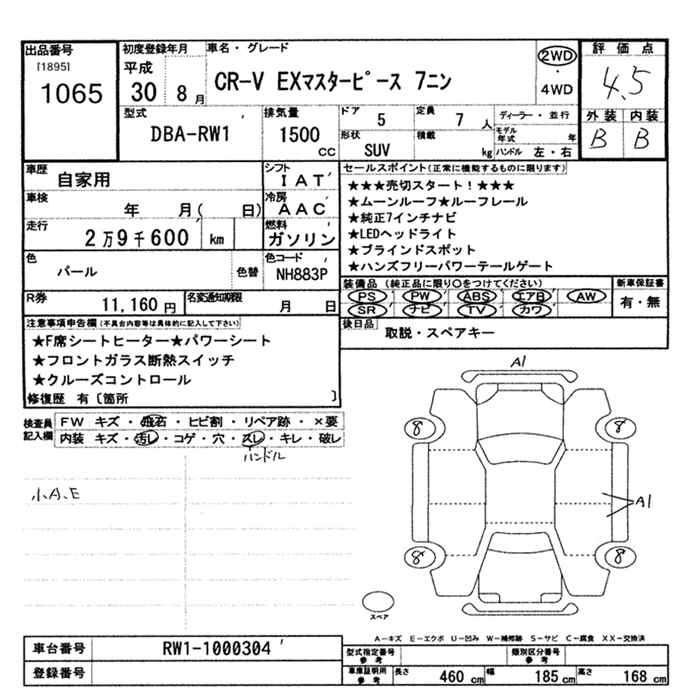 出品番号
[1895]
1065
初度登録年月
平成
30 8月
車名・グレード
CR-V EXマスターピース 7ニン
2WD
・
4WD
評価点
4.5
外装 内装
B B
型式
DBA-RW1
排気量
1500
cc
ドア
5
定員
7人
形状
SUV
積載
kg
ディーラー・並行
モデル年式 年
ハンドル 左・右
車歴
自家用
シフト
IAT
車検
年 月( 日)
冷房
AAC
走行
2万9千600 km
燃料
ガソリン
色
パール
色替
色コード
NH883P
R券
11,160円
名変通知期限
月 日
セールスポイント(正常に機能するものに限ります)
★★★売切スタート!★★★
★ムーンルーフ★ルーフレール
★純正7インチナビ
★LEDヘッドライト
★ブラインドスポット
★ハンズフリーパワーテールゲート
装備品(純正品に限り○をつけてください)
PS PW ABS エアB AW
SR ナビ TV カワ
新車保証書
有・無
後日品
取説・スペアキー
注意事項申告欄(不具合内容等は具体的に記入して下さい)
★F席シートヒーター★パワーシート
★フロントガラス断熱スイッチ
★クルーズコントロール
修復歴 有〔箇所 〕
検査員記入欄
FW キズ・飛石・ヒビ割・リペア跡・×要
内装 キズ・汚レ・コゲ・穴・スレ・キレ・破レ
ハンドル
小A、E
A1
8
8
A1
8
8
スペア
A-キズ E-エクボ U-凹み W-補修跡 S-サビ C-腐食 XX-交換済
車台番号
RW1-1000304
登録番号
型式指定番号
参考
類別区分番号
参考
車庫証明用
参考
長さ 460cm
幅 185cm
高さ 168cm